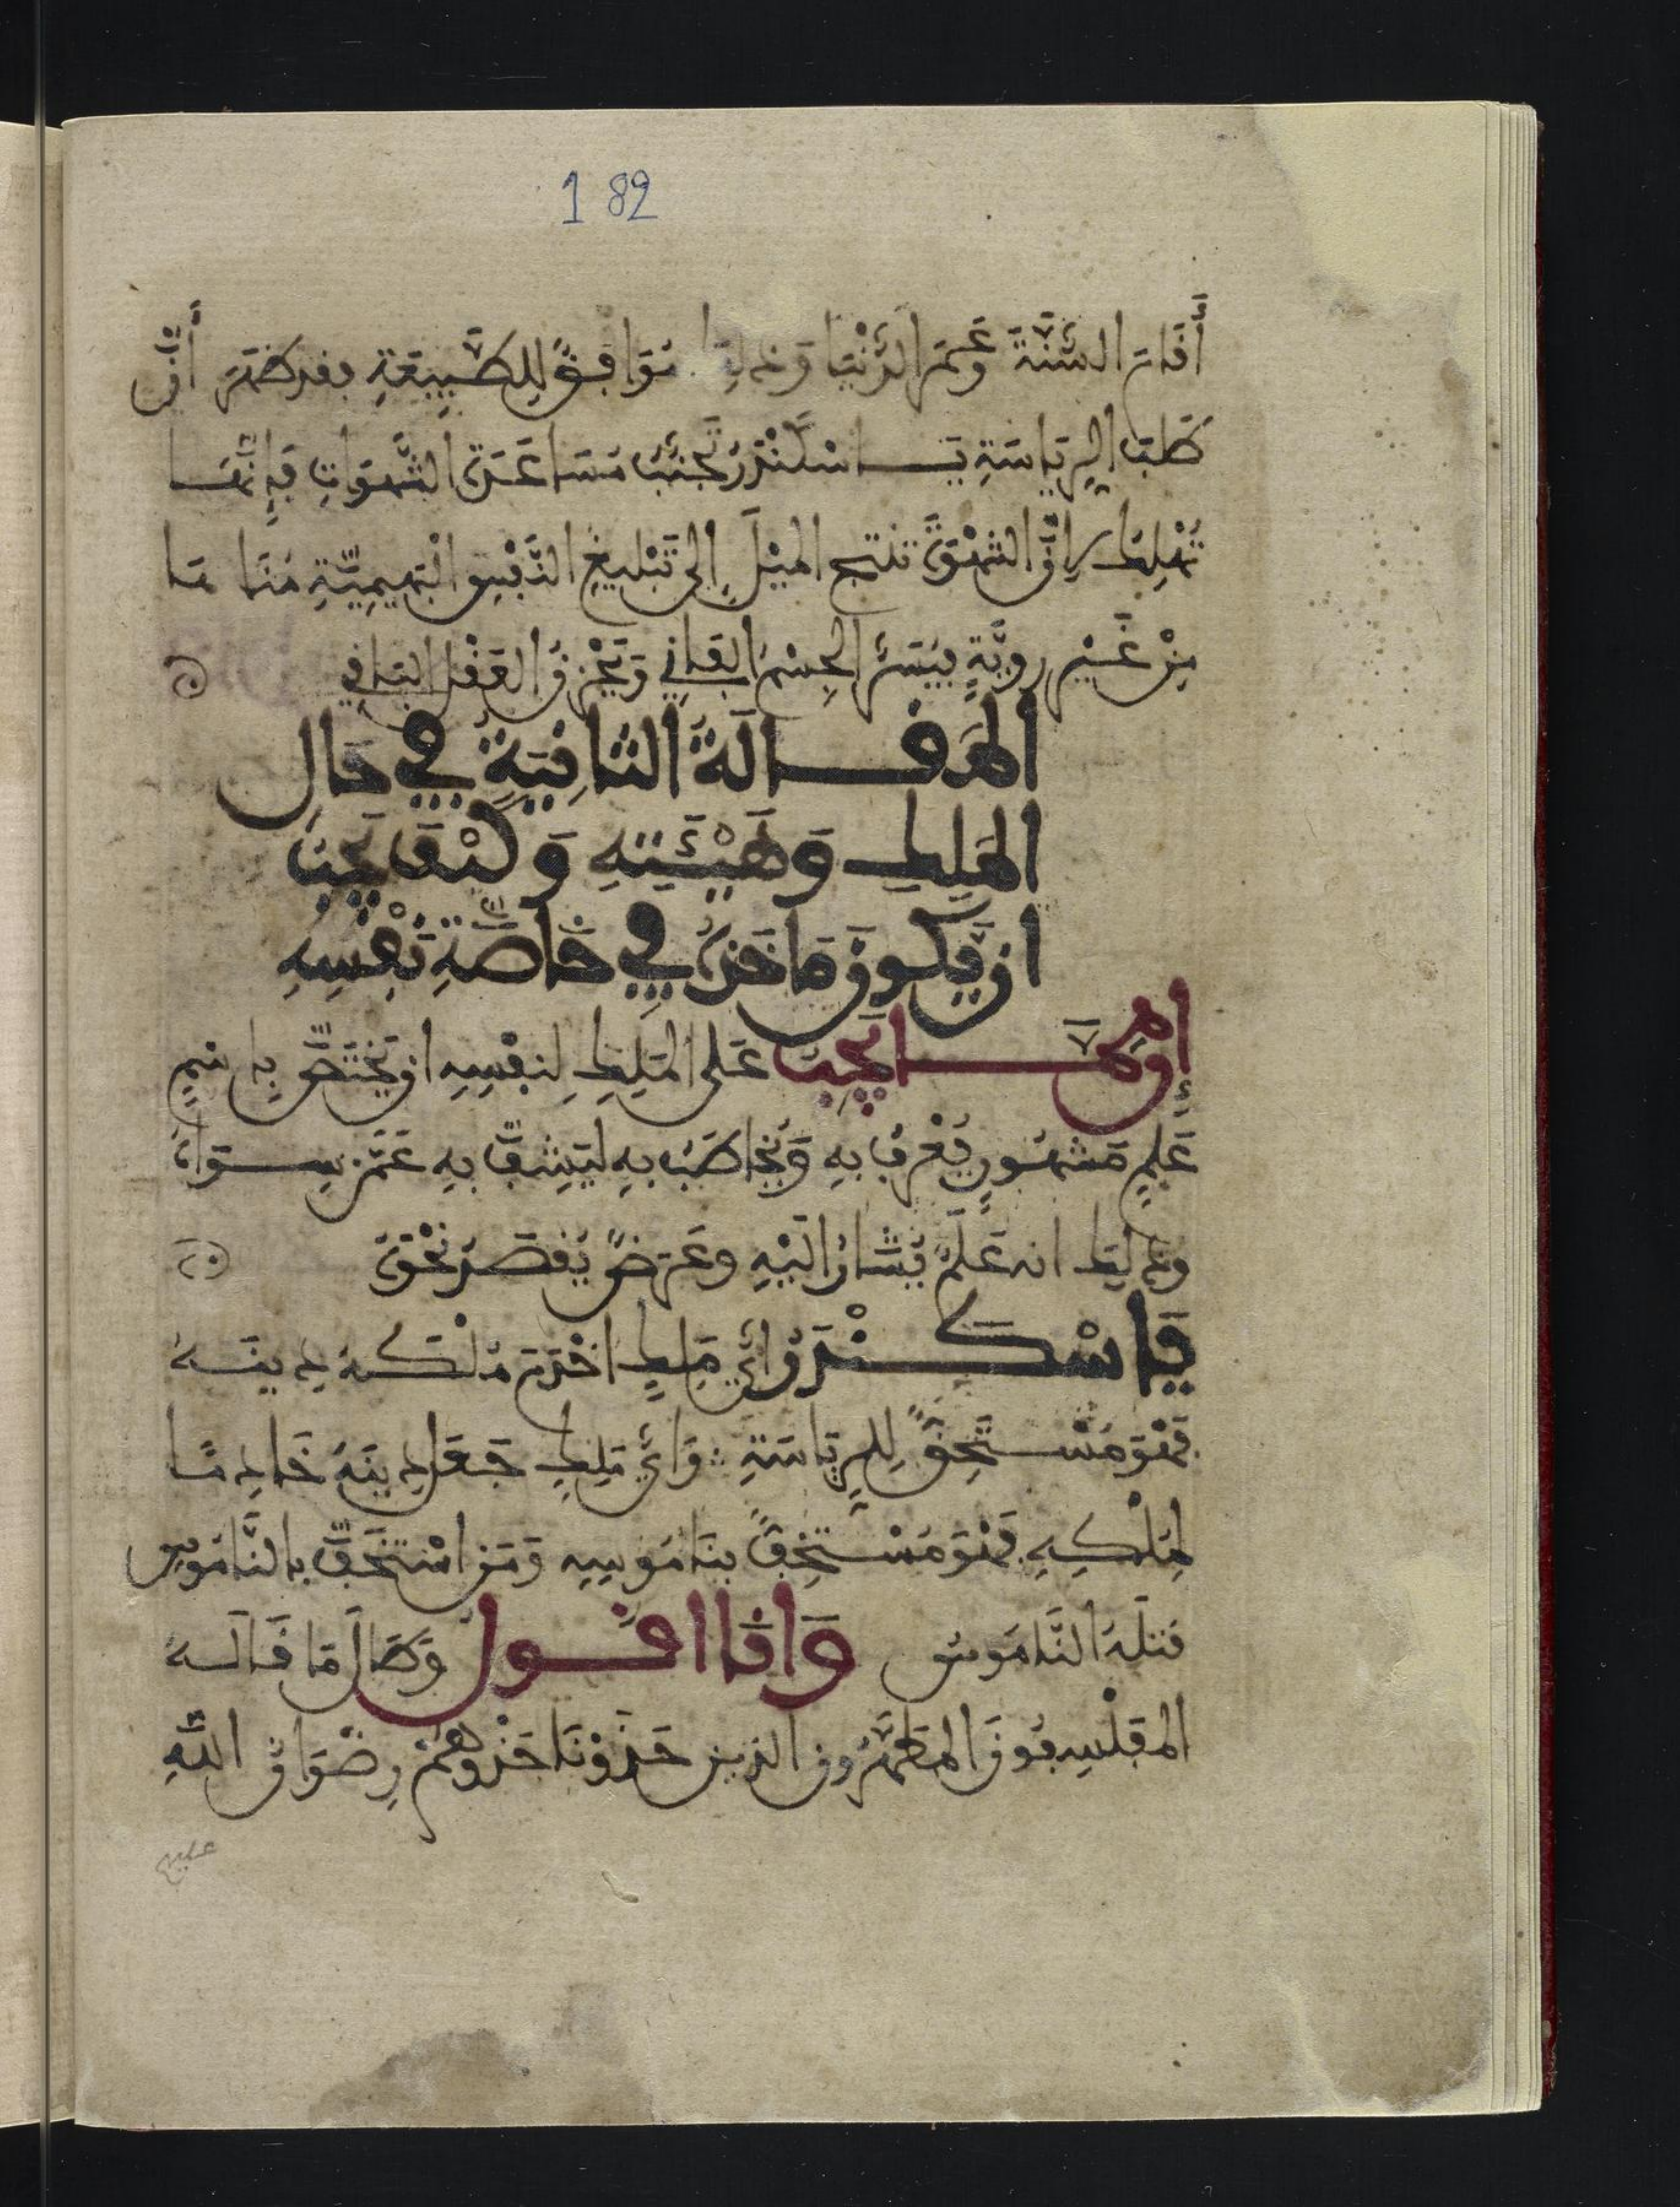 182
أَقَامَ السُّنَّةَ وَعَمَرَ الدُّنْيَا وَذلك مُوَافِقٌ لِلطَّبِيعَةِ فقد ظهَرَ أَنَّ
طَلَبَ الرِيَاسَةِ يَا اسْكَنْدَرُ تَجَنَّبْ مُسَاعَدَةَ الشَّهَوَاتِ فَإِنَّهَا
تُهْلِكُ لِأَنَّ الشَّهْوَةَ تنتج المَيْلَ إِلَى تَبْلِيغِ النَّفْسِ الْبَهِيمِيَّةِ مُنَاهَا
مِنْ غَيْرِ رَوِيَّةٍ فيُسَرُّ الجِسْمُ الفَانِي وَيَحْزَنُ العَقْلُ البَاقِي
المَقَالَةُ الثَانِيَةُ فِي حَالِ
المَلِكِ وَهَيْئَتِهِ وَكَيْفَ يَجِبُ
ان يَّكُونَ مَاخَذُهُ فِي خَاصَّةِ نَفْسِهِ
إِنَّ مِمَّا يَجِبُ عَلَى المَلِكِ لِنَفْسِهِ ان يَّخْتَصَّ بِاسْمٍ
عَلَمٍ مَشْهُورٍ يُعْرَفُ بِهِ وَيُخَاطَبُ بِهِ لِيَشِفَّ بِهِ عَمَّن سِوَاهُ
وذلِكَ انه عَلَمٌ يُشَارُ الَيْهِ وعَرَضٌ يُقْصَدُ نَحْوَهُ
يَا اسْكَنْدَرُ ايُّ مَلِكٍ اخْدَمَ مُلْكَهُ دِينَهُ
فَهْوَ مُسْتَحِقٌّ لِلرِيَاسَةِ وَايُّ مَلِكٍ جَعَلَ دِينَهُ خَادِمًا
لِمُلْكِهِ فَهْوَ مُسْتَخِفٌّ بِنَامُوسِهِ وَمَنِ اسْتَخَفَّ بِالنَّامُوسِ
قتَلَهُ النَّامُوسُ وَانَا اقُول وَطَالَ مَا قَالَهُ
المُتَفَلْسِفُونَ المُطَهَّرُون الذين حَذَوْنَا حَذْوَهُمْ رِضْوَانُ اللّهِ
عليهم